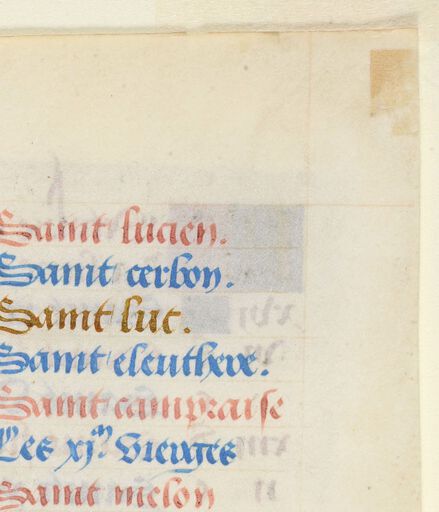 Saint lucien.
Saint cerbon.
Saint luc.
Saint eleuthere.
Saint capraise
Les xjᵐ Vierges
Saint melon